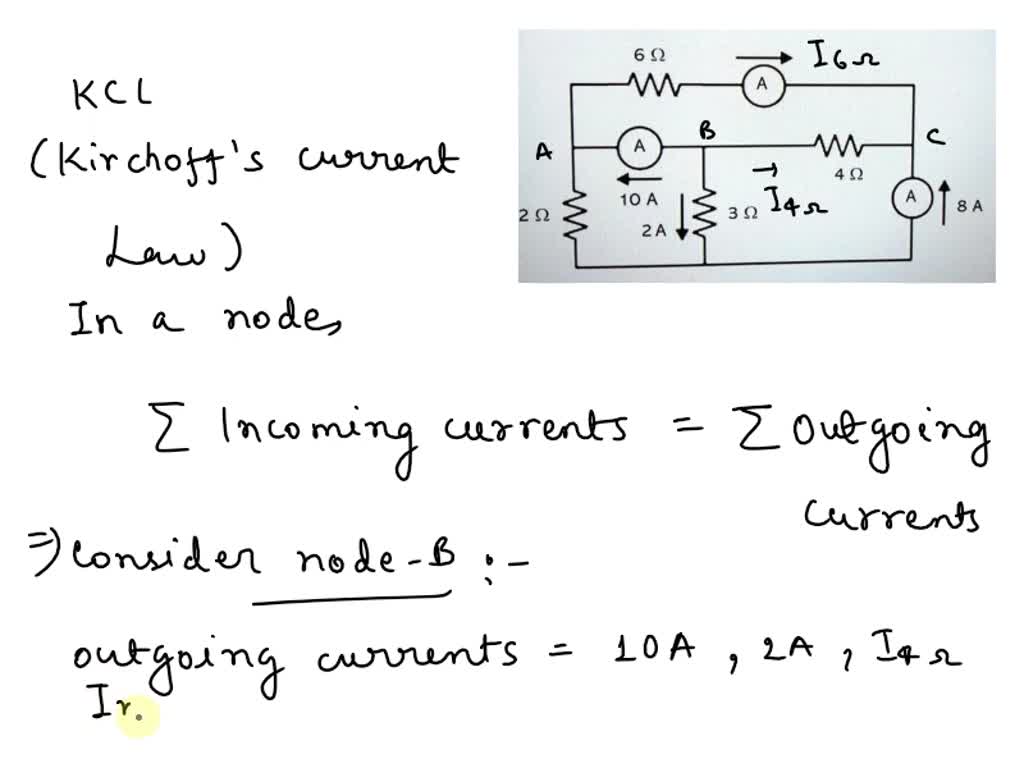 KCL
(Kirchoff's current
Law)
In a node,
6 Ω
A
I6Ω
A
A
B
C
10 A
4 Ω
I4Ω
2 Ω
2 A
3 Ω
A
8 A
∑ Incoming currents = ∑ Outgoing
currents
⇒ Consider node-B :-
outgoing currents = 10A , 2A , I4Ω
In